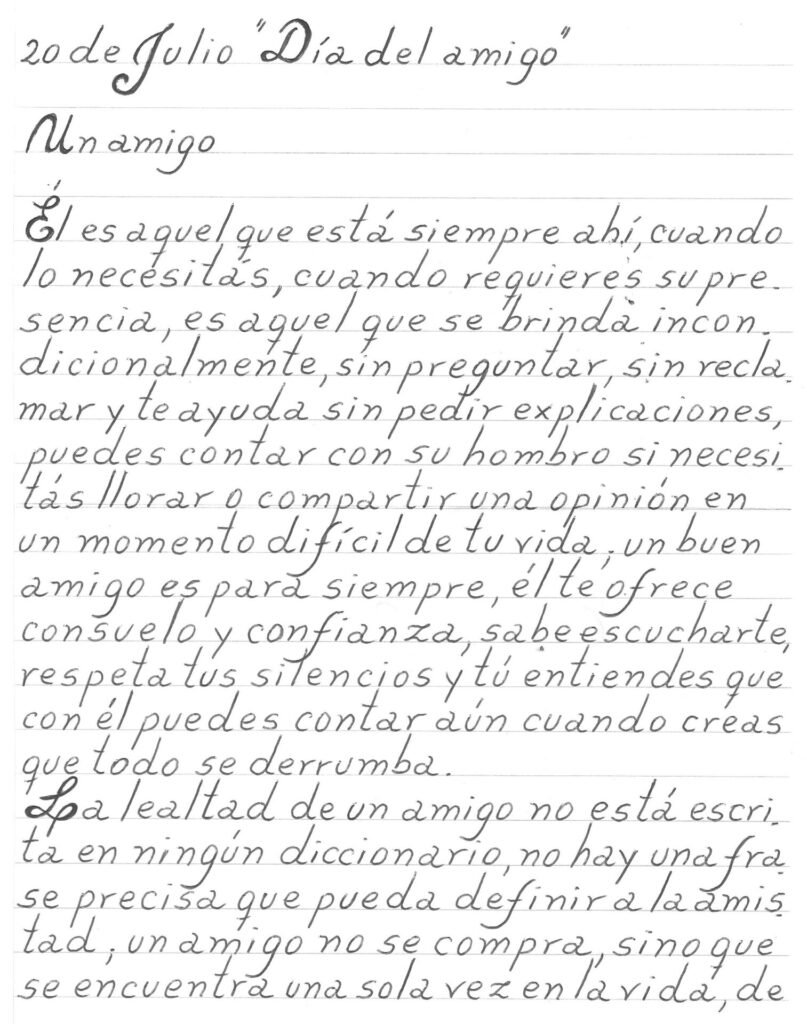 20 de Julio "Día del amigo"
Un amigo
Él es aquel que está siempre ahí, cuando
lo necesitás, cuando requieres su pre-
sencia, es aquel que se brinda incon-
dicionalmente, sin preguntar, sin recla-
mar y te ayuda sin pedir explicaciones,
puedes contar con su hombro si necesi-
tás llorar o compartir una opinión en
un momento difícil de tu vida; un buen
amigo es para siempre, él te ofrece
consuelo y confianza, sabe escucharte,
respeta tus silencios y tú entiendes que
con él puedes contar aún cuando creas
que todo se derrumba.
La lealtad de un amigo no está escri-
ta en ningún diccionario, no hay una fra-
se precisa que pueda definir a la amis-
tad; un amigo no se compra, sino que
se encuentra una sola vez en la vida, de